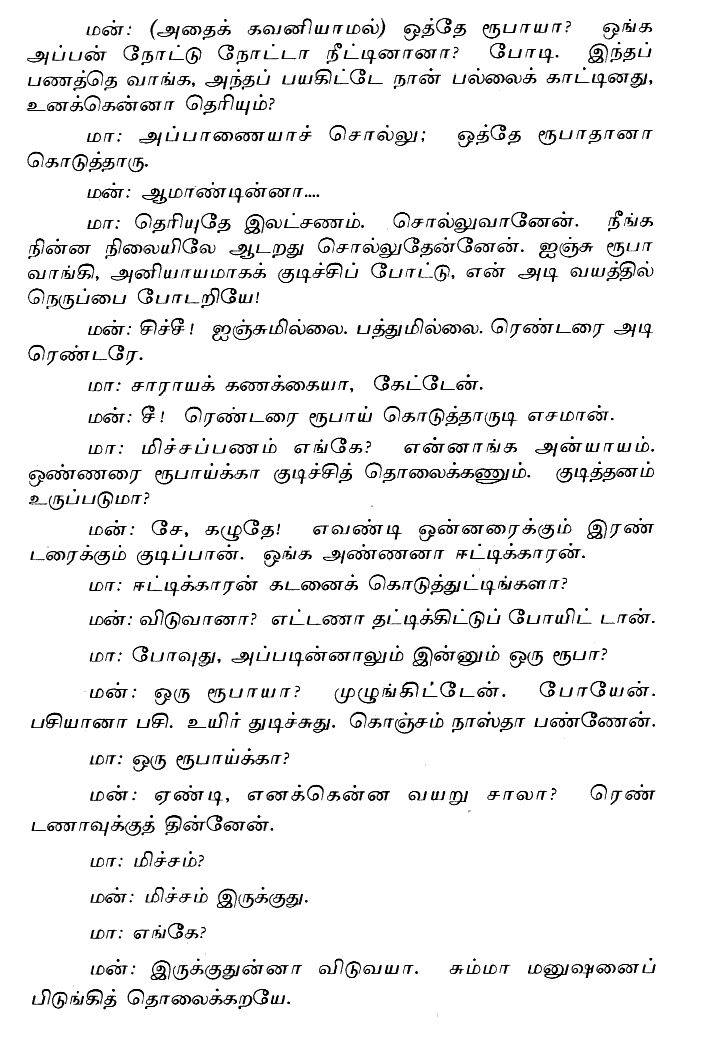 மன்: (அதைக் கவனியாமல்) ஒத்தே ரூபாயா? ஒங்க
அப்பன் நோட்டு நோட்டா நீட்டினானா? போடி. இந்தப்
பணத்தெ வாங்க, அந்தப் பயகிட்டே நான் பல்லைக் காட்டினது,
உனக்கென்னா தெரியும்?
மா: அப்பாணையாச் சொல்லு; ஒத்தே ரூபாதானா
கொடுத்தாரு.
மன்: ஆமாண்டின்னா....
மா: தெரியுதே இலட்சணம். சொல்லுவானேன். நீங்க
நின்ன நிலையிலே ஆடறது சொல்லுதேன்னேன். ஐஞ்சு ரூபா
வாங்கி, அனியாயமாகக் குடிச்சிப் போட்டு, என் அடி வயத்தில்
நெருப்பை போடறியே!
மன்: சிச்சீ! ஐஞ்சுமில்லை. பத்துமில்லை. ரெண்டரை அடி
ரெண்டரே.
மா: சாராயக் கணக்கையா, கேட்டேன்.
மன்: சீ! ரெண்டரை ரூபாய் கொடுத்தாருடி எசமான்.
மா: மிச்சப்பணம் எங்கே? என்னாங்க அன்யாயம்.
ஒண்ணரை ரூபாய்க்கா குடிச்சித் தொலைக்கணும். குடித்தனம்
உருப்படுமா?
மன்: சே, கழுதே! எவண்டி ஒன்னரைக்கும் இரண்
டரைக்கும் குடிப்பான். ஒங்க அண்ணனா ஈட்டிக்காரன்.
மா: ஈட்டிக்காரன் கடனைக் கொடுத்துட்டிங்களா?
மன்: விடுவானா? எட்டணா தட்டிக்கிட்டுப் போயிட் டான்.
மா: போவுது, அப்படின்னாலும் இன்னும் ஒரு ரூபா?
மன்: ஒரு ரூபாயா? முழுங்கிட்டேன். போயேன்.
பசியானா பசி. உயிர் துடிச்சுது. கொஞ்சம் நாஸ்தா பண்ணேன்.
மா: ஒரு ரூபாய்க்கா?
மன்: ஏண்டி, எனக்கென்ன வயறு சாலா? ரெண்
டணாவுக்குத் தின்னேன்.
மா: மிச்சம்?
மன்: மிச்சம் இருக்குது.
மா: எங்கே?
மன்: இருக்குதுன்னா விடுவயா. சும்மா மனுஷனைப்
பிடுங்கித் தொலைக்கறயே.